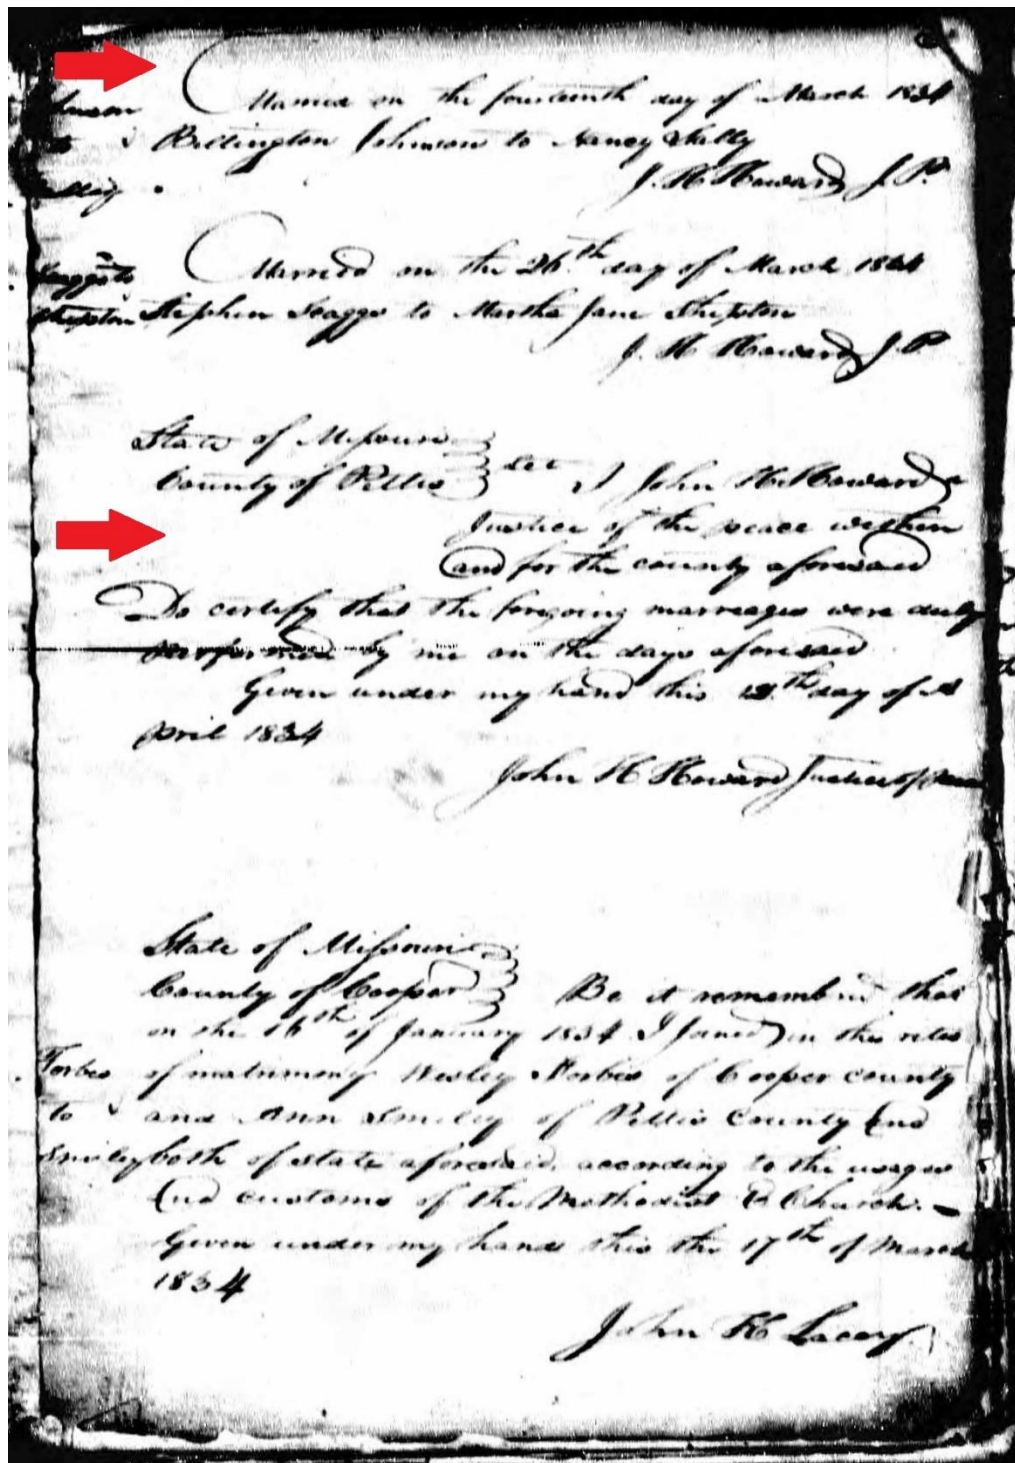 Married on the fourteenth day of March 1834
Billington Johnson to Nancy
J. H Howard J. P.
Married on the 26th day of March 1834
Scaggs to
Shipton Stephen Scaggs to Martha Jane Shipton
J. H Howard J. P
State of Missouri
County of Pettis
I John H. Howard a
Justice of the peace within
and for the county aforesaid
Do certify that the forgoing marriages were duly
performed by me on the days aforesaid
Given under my hand this day of A
pril 1834
John H Howard Justice of
State of Missouri
County of Cooper Be it remembred that
on the 16th of January 1834 I Joined in the rites
Forbis of matrimony Wesley Forbis of Cooper county
to and Ann Smiley of Pettis County and
Smiley both of state aforesaid, according to the usages
and customs of the Methodist E Church. —
Given under my hand this the 17th of March
1834
John H Lacey